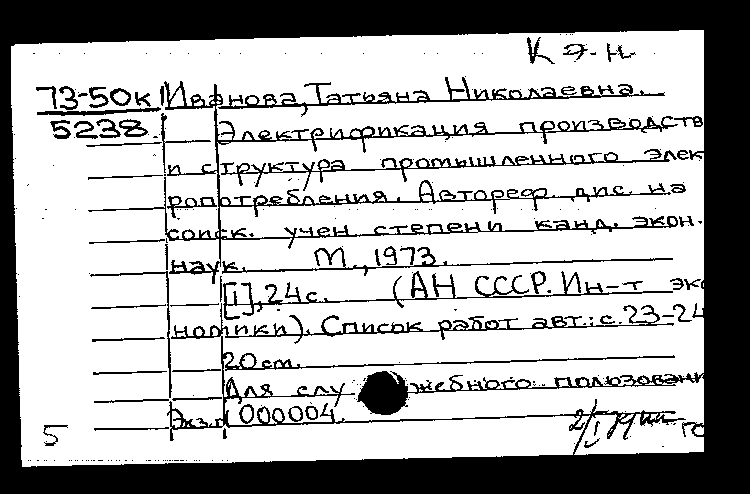 К Э-Н
73-50к Иванова, Татьяна Николаевна.
5238. Электрификация производств
и структура промышленного элек
ропотребления. Автореф. дис. на
соиск. учен степени канд. экон.
наук. М., 1973.
[1], 24 с. (АН СССР. Ин-т эко
номики). Список работ авт.: с. 23-24
20 см.
Для служебного пользовани
Экз. 000004.
5